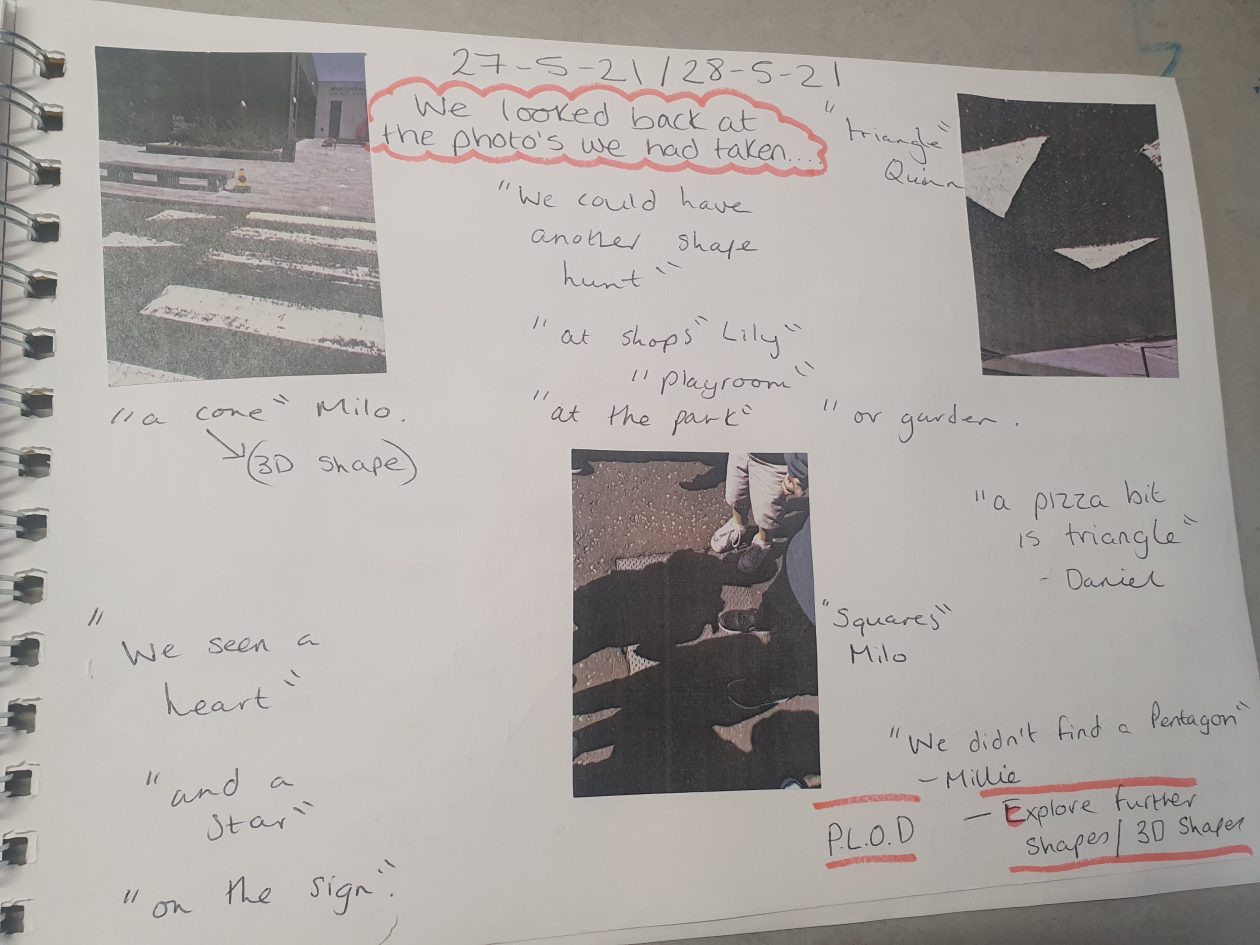 27-5-21/28-5-21
We looked back at
the photo's we had taken....
"triangle"
Quinn
"We could have
another shape
hunt"
"at shops" Lily"
"playroom"
"at the park"
"or garden.
"a cone" Milo.
(3D shape)
"a pizza bit
is triangle"
- Daniel
"Squares"
Milo
"We seen a
heart"
"and a
star"
"on the sign".
"We didn't find a Pentagon"
- Millie
P.L.O.D
- Explore further
shapes/3D shapes